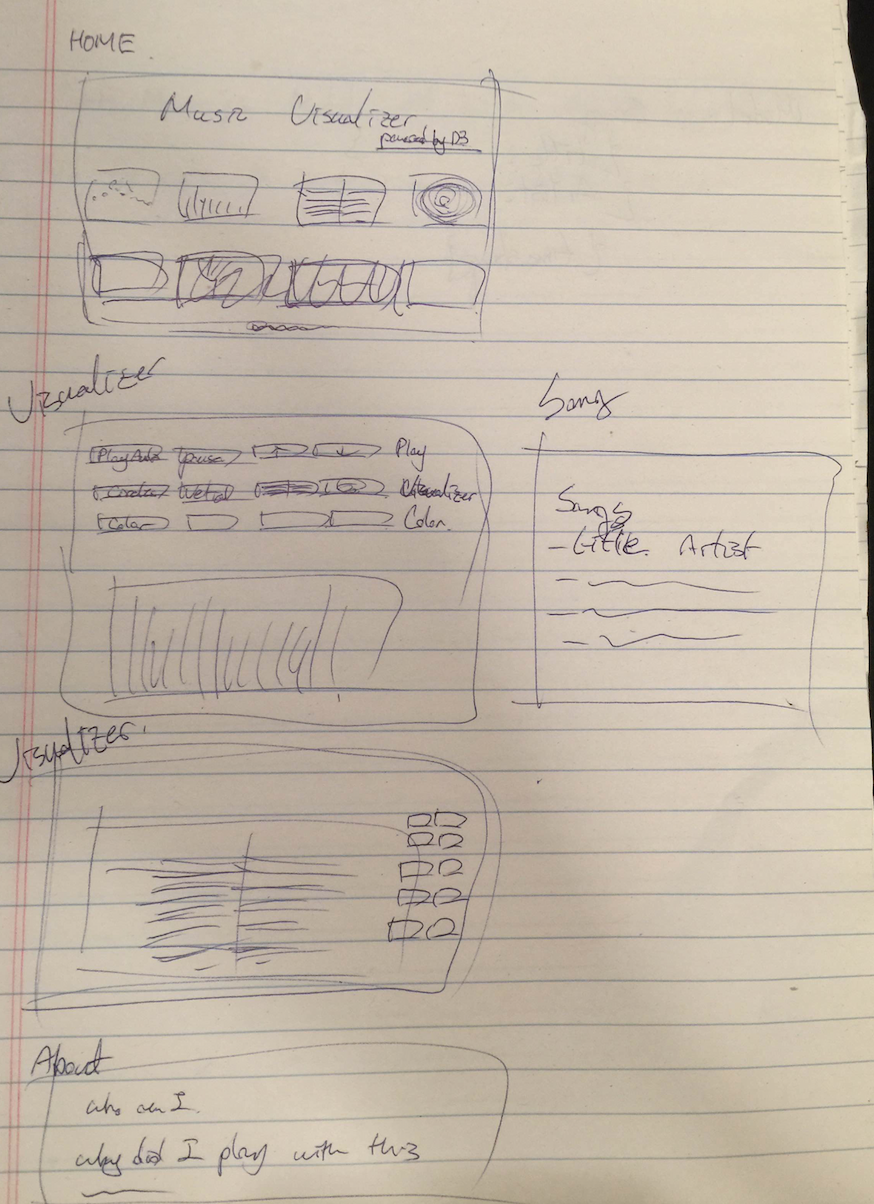 HOME
Music Visualizer
powered by D3
Visualizer
Play Auto pause Play
Vertical Visualizer
Color Color
Song
Songs
- title Artist
Visualizer
About
who am I
why did I play with this